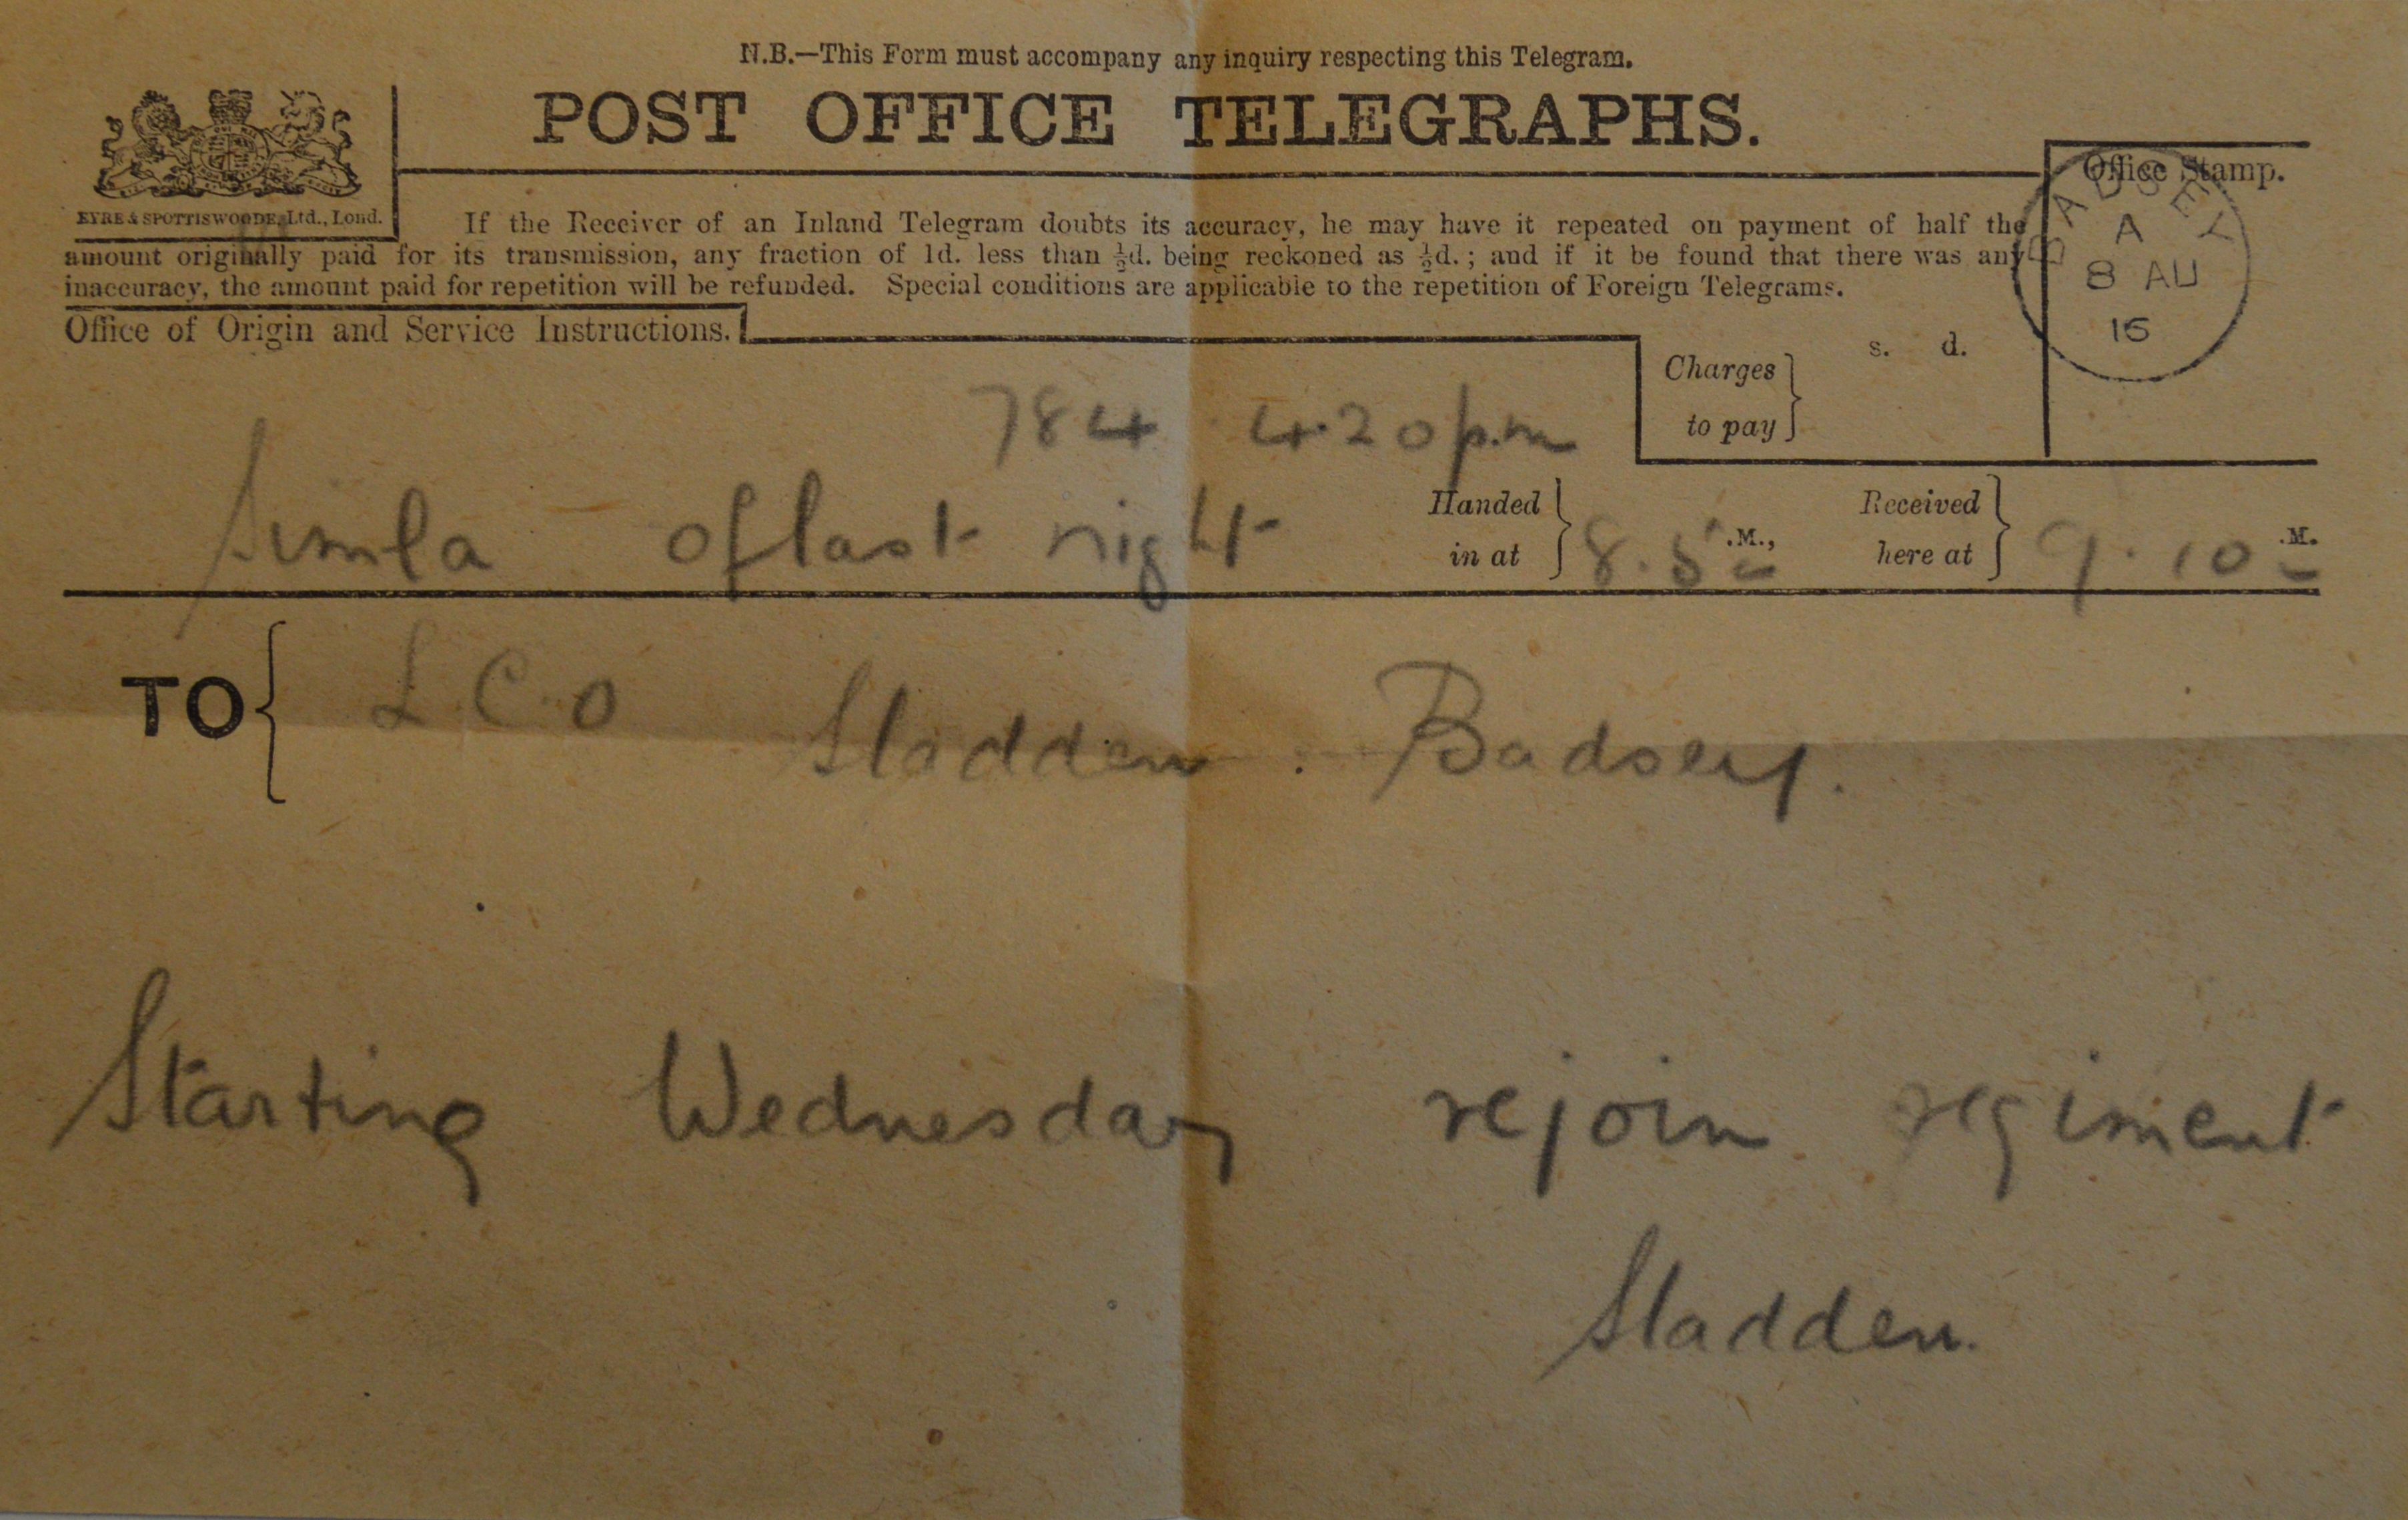 N.B.—This Form must accompany any inquiry respecting this Telegram.
POST OFFICE TELEGRAPHS.
EYRE & SPOTTISWOODE, Ltd., Lond.
Office Stamp.
BADSEY
A
8 AU
15
If the Receiver of an Inland Telegram doubts its accuracy, he may have it repeated on payment of half the
amount originally paid for its transmission, any fraction of 1d. less than ½d. being reckoned as ½d.; and if it be found that there was any
inaccuracy, the amount paid for repetition will be refunded. Special conditions are applicable to the repetition of Foreign Telegrams.
Office of Origin and Service Instructions.
Charges
to pay
s. d.
784 4.20 p.m
Simla of last night
Handed
in at
8.5 .M.,
Received
here at
9.10 .M.
TO L.C.O Sladden. Badsey.
Starting Wednesday rejoin regiment
Sladden.